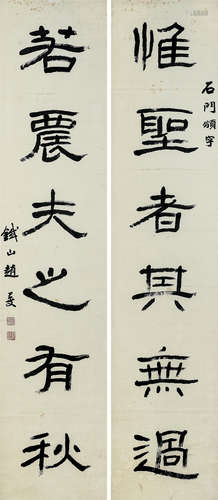 惟聖者其無過
石門頌字
若農夫之有秋
鐵山趙